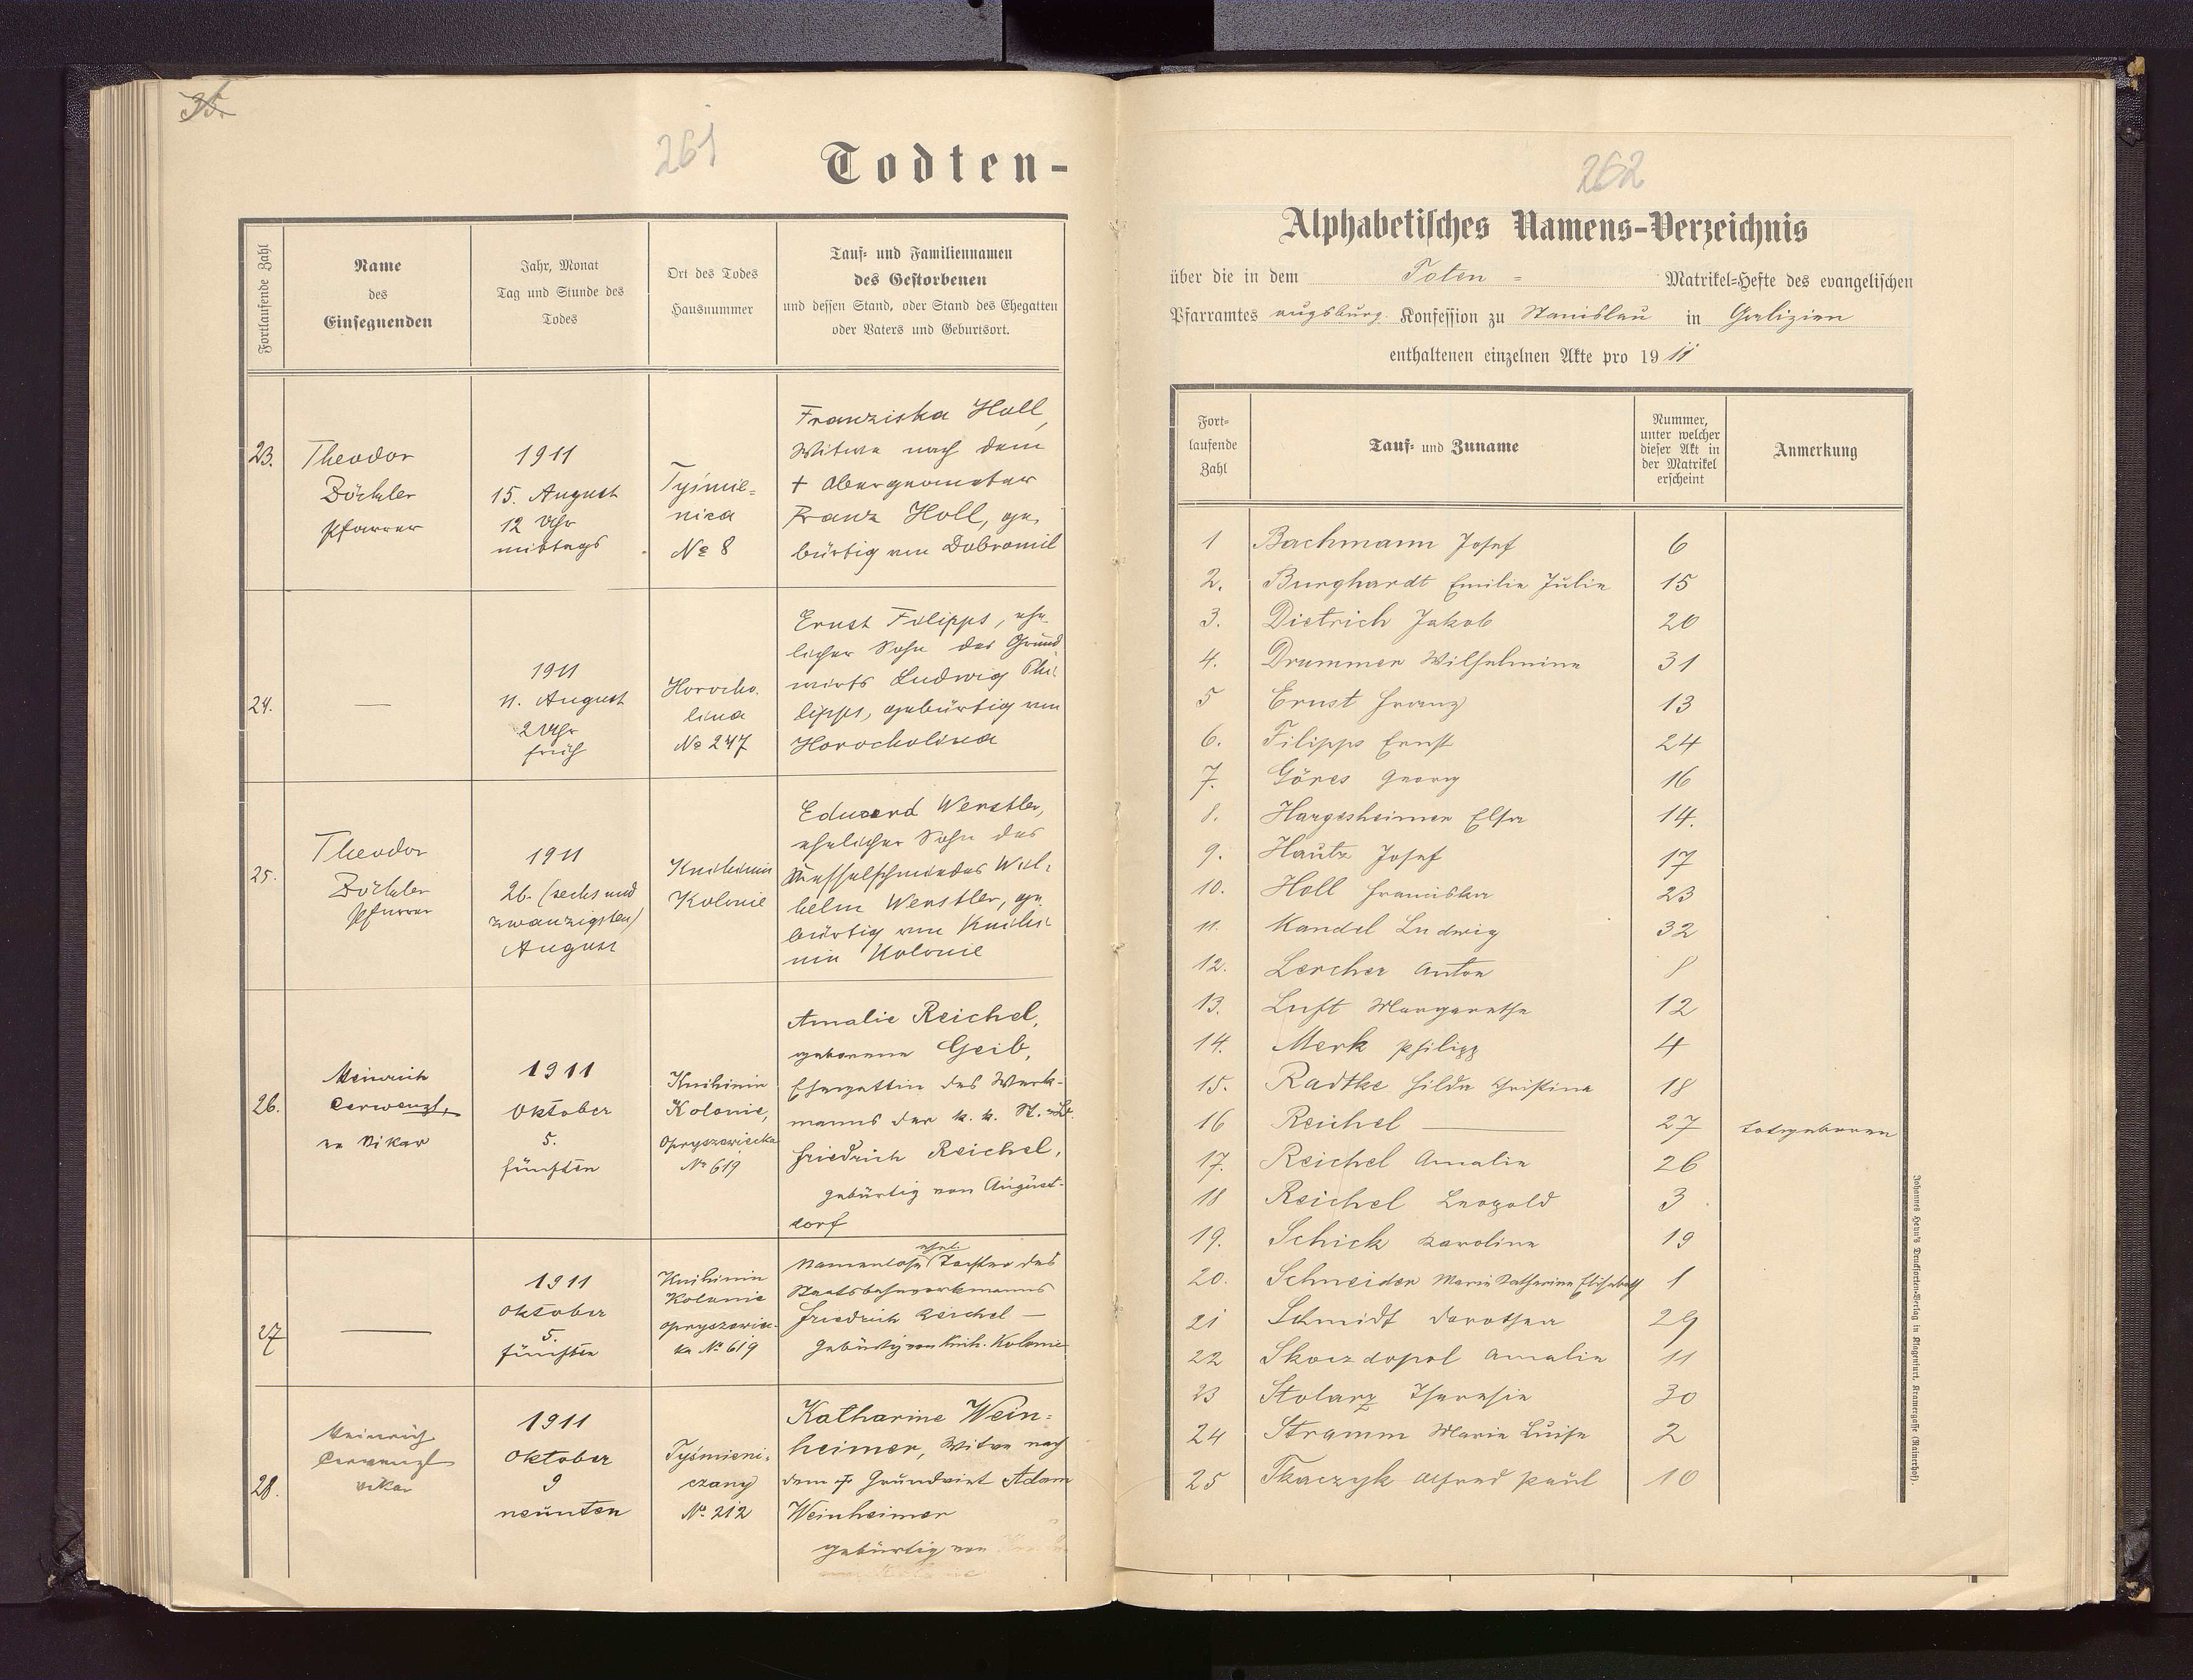 35.
261
Todten-
Fortlaufende Zahl
Name
des
Einsegnenden
Jahr, Monat
Tag und Stunde des
Todes
Ort des Todes
Hausnummer
Tauf- und Familiennamen
des Gestorbenen
und dessen Stand, oder Stand des Ehegatten
oder Vaters und Geburtsort.
23.
Theodor
Zöckler
Pfarrer
1911
15. August
12 Uhr
mittags
Tyśmie-
nica
No 8
Franziska Holl,
Witwe nach dem
+ Obergeometer
Franz Holl, ge-
bürtig von Dobromil
24.
—
1911
11. August
2 Uhr
früh
Horocho-
lina
No 247
Ernst Filipps, ehe-
licher Sohn des Grund-
wirts Ludwig Phi-
lipps, gebürtig von
Horocholina
25.
Theodor
Zöckler
Pfarrer
1911
26. (sechs und
zwanzigsten)
August
Knihinin
Kolonie
Eduard Werstler,
ehelicher Sohn des
Kesselschmiedes Wil-
helm Werstler, ge-
bürtig von Knihi-
nin Kolonie
26.
Heinrich
Vikar
1911
Oktober
5.
fünften
Knihinin
Kolonie,
Opryszowiecka
No 619
Amalie Reichel,
geborene Geib,
Ehegattin des Werk-
manns der k. k. St.-B.
Friedrich Reichel,
gebürtig von August-
dorf
27
—
1911
Oktober
5.
fünften
Knihinin
Kolonie
Opryszowiec-
ka No 619
ehel.
Namenlose Tochter des
Staatsbahnwerkmanns
Friedrich Reichel —
gebürtig von Knih. Kolonie
28.
Heinrich
Vikar
1911
Oktober
9
neunten
Tyśmieni-
czany
No 212
Katharine Wein-
heimer, Witwe nach
dem + Grundwirt Adam
Weinheimer
gebürtig von
262
Alphabetisches Namens-Verzeichnis
über die in dem Toten- Matrikel-Hefte des evangelischen
Pfarramtes augsburg. Konfession zu Stanislau in Galizien
enthaltenen einzelnen Akte pro 1911
Fort-
laufende
Zahl
Tauf- und Zuname
Nummer,
unter welcher
dieser Akt in
der Matrikel
erscheint
Anmerkung
1 Bachmann Josef 6
2. Burghardt Emilie Julie 15
3. Dietrich Jakob 20
4. Drummer Wilhelmine 31
5 Ernst Franz 13
6. Filipps Ernst 24
7. Göres Georg 16
8. Hargesheimer Elsa 14.
9. Hautz Josef 17
10. Holl Franziska 23
11. Kandel Ludwig 32
12. Lercher Anton 8
13. Luft Margarethe 12
14. Merk Philipp 4
15. Radtke Hilda Christine 18
16 Reichel — 27 totgeboren
17. Reichel Amalie 26
18 Reichel Leopold 3
19. Schick Karoline 19
20. Schneider Marie Katharine Elisabeth 1
21 Schmidt Dorothea 29
22 Skoczdopol Amalie 11
23 Stolarz Theresie 30
24 Stramm Marie Luise 2
25 Tkaczyk Alfred Paul 10
Johannes Heyn's Drucksorten-Verlag in Klagenfurt, Kramergasse (Rainerhof).